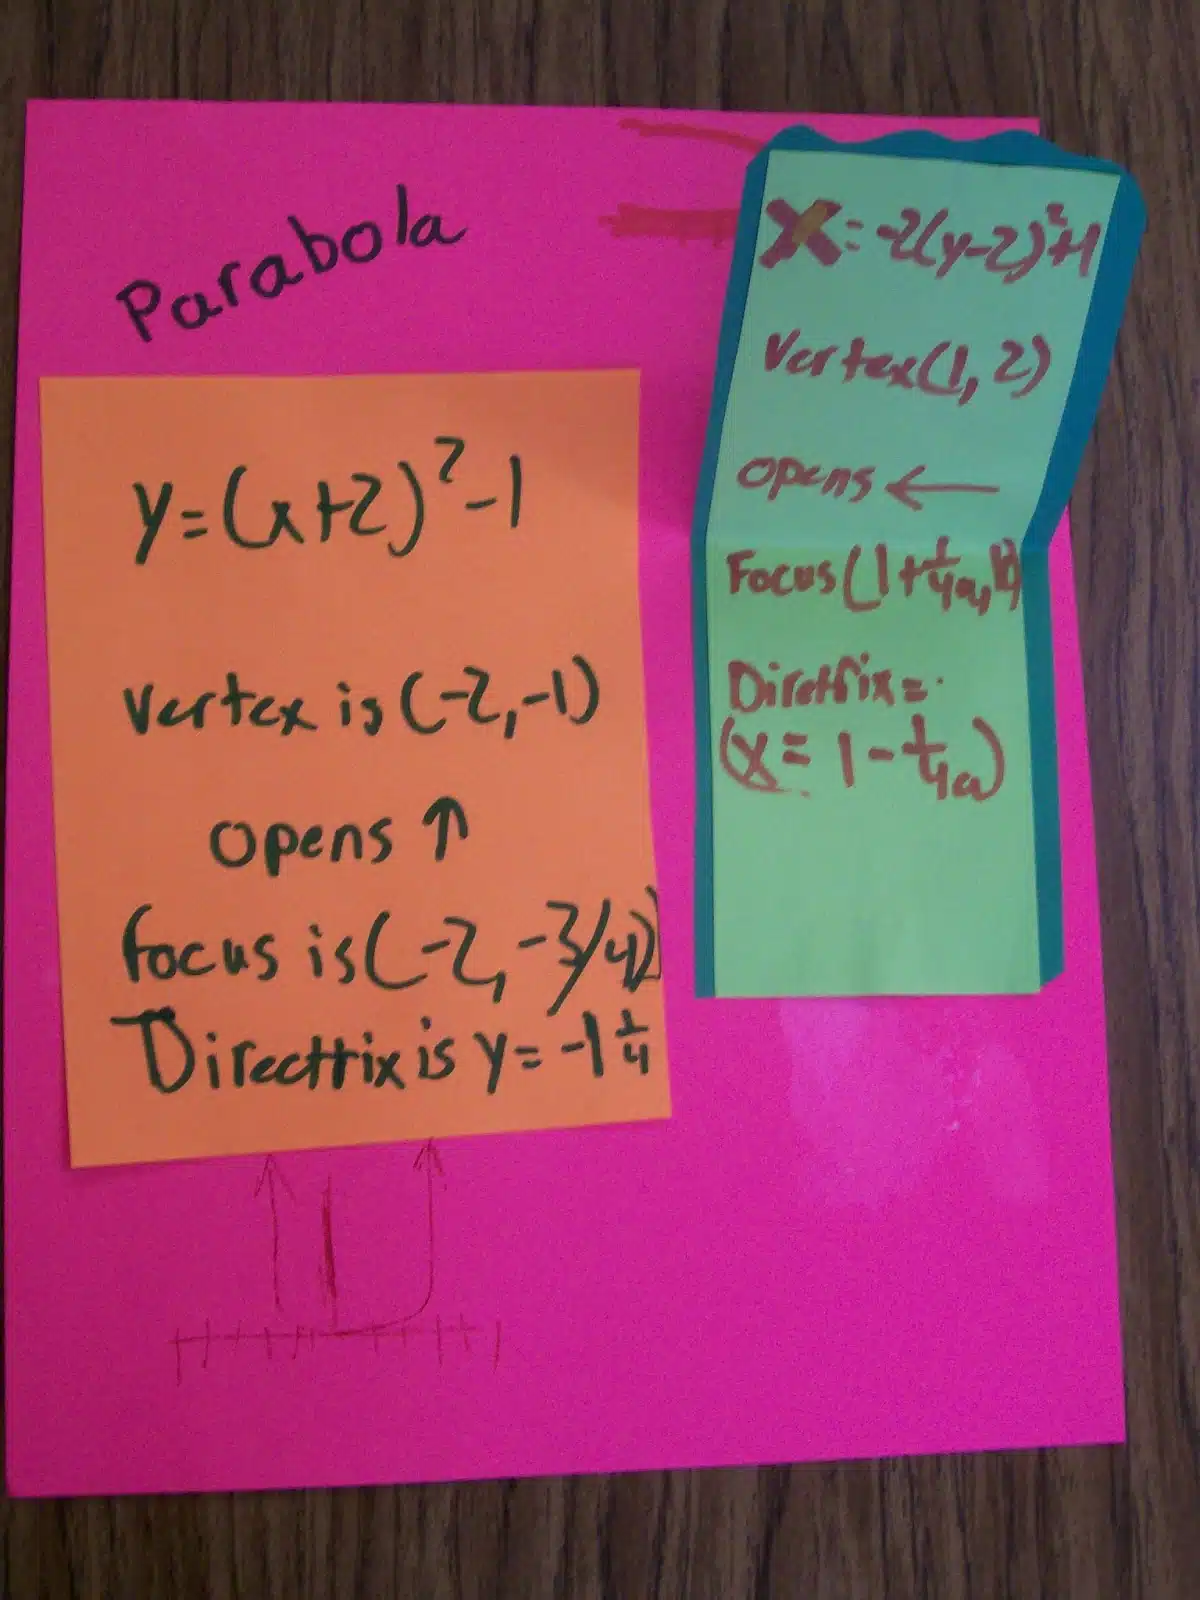 Parabola
y=(x+2)²-1
vertex is (-2,-1)
opens ↑
focus is (-2, -3/4)
Directrix is y= -1 1/4
X= -2(y-2)²+1
Vertex(1, 2)
opens ←
Focus (1+1/4a, k)
Diretrix=
(x= 1 - 1/4a)